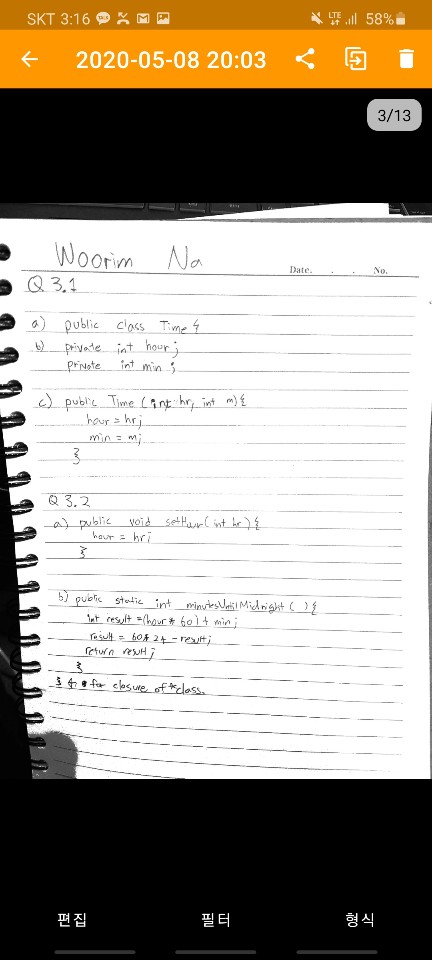 SKT 3:16 LTE 58%
2020-05-08 20:03
3/13
Woorim Na
Date. . . No.
Q 3.1
a) public class Time {
b) private int hour;
private int min;
c) public Time (int hr, int m){
hour = hr;
min = m;
}
Q 3.2
a) public void setHour(int hr){
hour = hr;
}
b) public static int minutesUntilMidnight ( ){
int result =(hour * 60) + min;
result = 60* 24 - result;
return result;
}
} closure of class.
편집 필터 형식